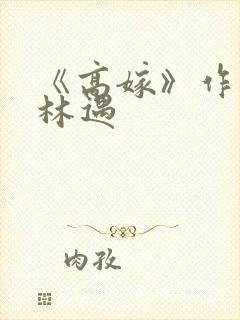 《高嫁》作
林遇
肉孜